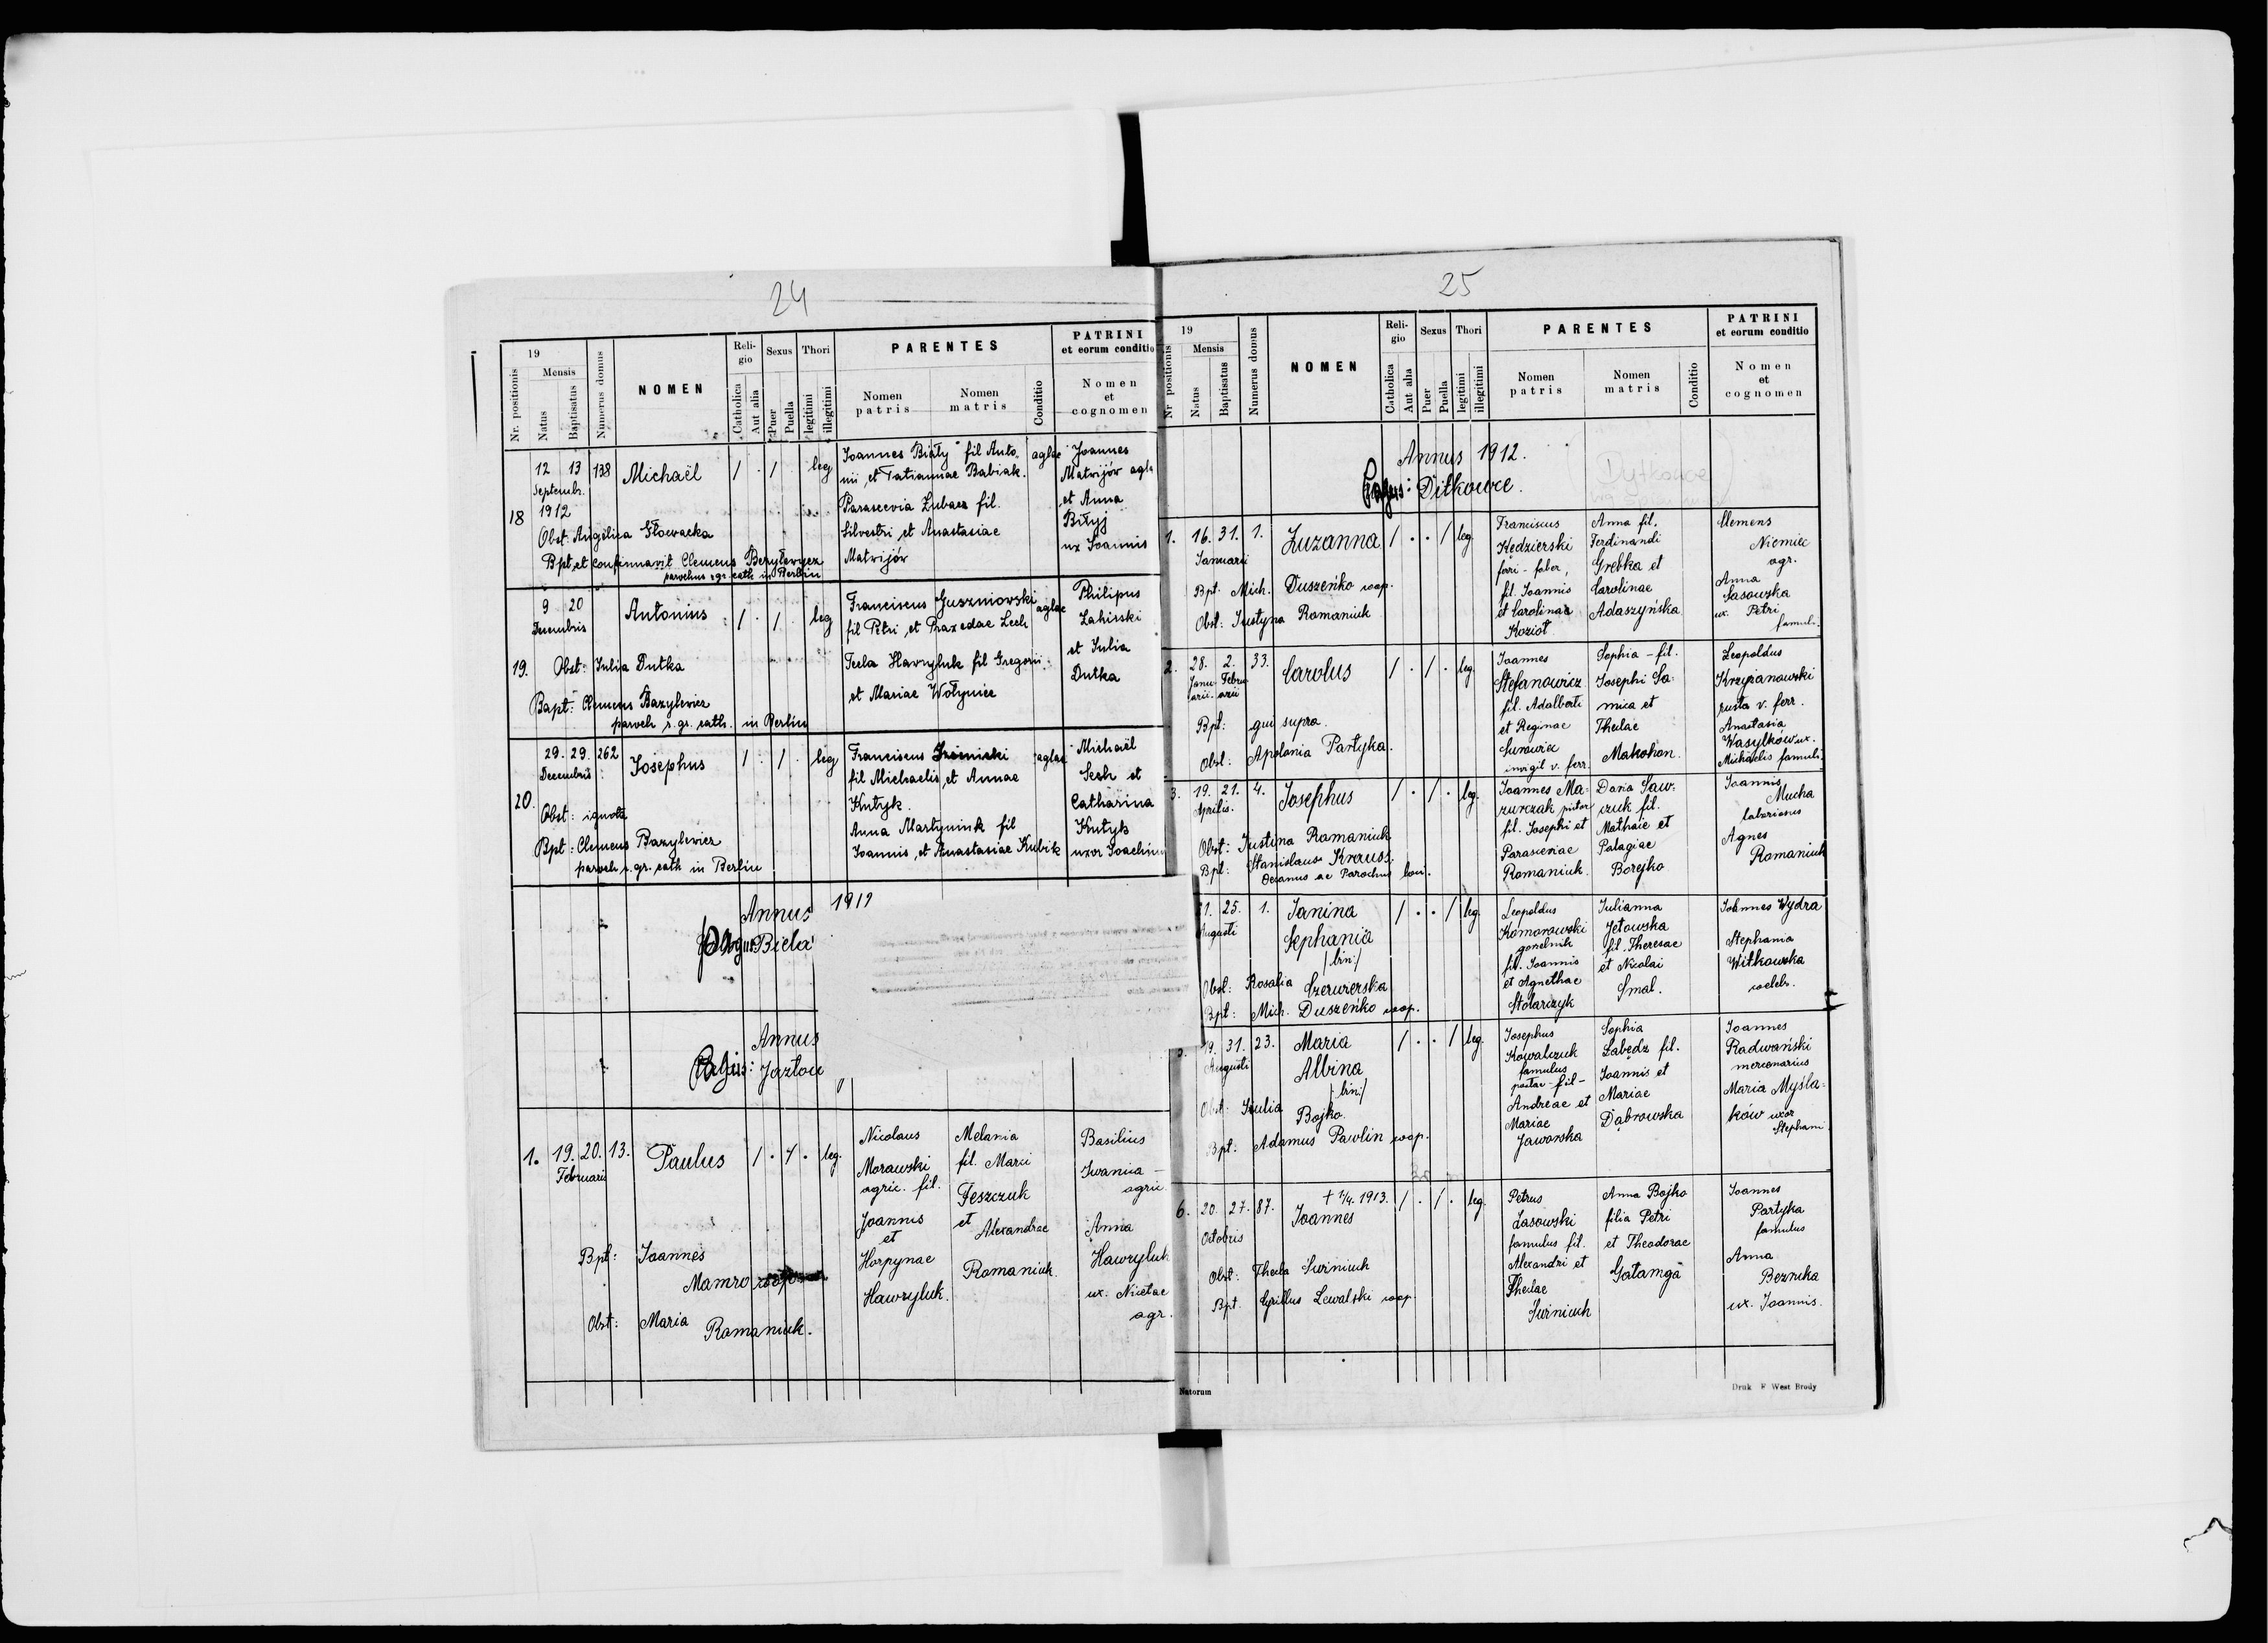 24
19
Mensis
Nr. positionis
Natus
Baptisatus
Numerus domus
NOMEN
Religio
Catholica
Aut alia
Sexus
Puer
Puella
Thori
legitimi
illegitimi
PARENTES
Nomen patris
Nomen matris
Conditio
PATRINI
et eorum conditio
Nomen
et
cognomen
18
12 13 138 Michaël 1 . 1 leg
Septembr.
1912
Obst: Angelica Głowacka
Bpt. et confirmavit Clemens Bazylewycz
parochus r. gr. cath. in Berlin
Joannes Biały fil Anto-
nii, et Tatiannae Babiak.
Parascevia Zubacz fil.
Silvestri, et Anastasiae
Matvijór
Joannes
Matvijór
et Anna
Biłyj
ux Joannis
19.
9 20 Antonius 1 . 1 . leg
Decembris
Obst: Iulia Dutka
Bapt: Clemens Bazylewicz
paroch r. gr. cath. in Berlin
Franciscus Guszniovski
fil Petri, et Praxedae Lech
Tecla Havryluk fil Gregorii
et Mariae Wołyniec
Philipus
et Iulia
Dutka
20.
29. 29. 262 Josephus 1 . 1 . leg
Decembris
Obst: ignota
Bpt: Clemens Bazylewicz
paroch r. gr. cath in Berlin
Franciscus
fil Michaelis, et Annae
Kutyk.
Anna Martyniuk fil
Joannis, et Anastasiae Kubik
Michaël
Lech et
Catharina
Kutyk
uxor Joachim
Annus 1912
Pagus: Biela
Annus
Pagus:
1. 19. 20. 13. Paulus 1 . 1 . leg.
Februarii
Bpt: Joannes
Mamro
Obst: Maria
Romaniuk.
Nicolaus
Morawski
agric. fil.
Joannis
et
Horpynae
Hawryluk.
Melania
fil. Marci
Feszczuk
et
Alexandrae
Romaniuk.
Basilius
Iwanica
agric
Anna
Hawryluk
ux. Nicetae
agr.
25
19
Mensis
Nr positionis
Natus
Baptisatus
Numerus domus
NOMEN
Religio
Catholica
Aut alia
Sexus
Puer
Puella
Thori
legitimi
illegitimi
PARENTES
Nomen patris
Nomen matris
Conditio
PATRINI
et eorum conditio
Nomen
et
cognomen
Annus 1912.
Pagus: Ditkowce.
(Dytkowce)
1. 16. 31. 1. Zuzanna 1 . . 1 leg.
Januarii
Bpt. Mich. Duszeńko coop.
Obst: Justyna Romaniuk
Franciscus
Kędzierski
ferri-faber,
fil. Joannis
et Carolinae
Kozioł
Anna fil.
Ferdinandi
Grebka et
Carolinae
Adaszyńska
Clemens
Niemiec
agr.
Anna
Sasowska
ux. Petri
famul.
2. 28. 2. 33. Carolus 1 . 1 . leg.
Janu- Febru-
arii. arii
Bpt: qui supra.
Obst: Apolonia Partyka.
Joannes
Stefanowicz
fil. Adalberti
et Reginae
Surowiec
invigil v. ferr.
Sophia - fil.
Josephi Sa-
mica et
Theclae
Makohon.
Leopoldus
Krzyżanowski
v. ferr.
Anastasia
Wasylków ux.
Michaelis famuli.
3. 19. 21. 4. Josephus 1 . 1 . leg.
Aprilis.
Obst: Justina Romaniuk
Bpt: Stanislaus Krauss
Decanus ac Parochus loci.
Joannes Ma-
zurczak
fil. Josephi et
Parasceviae
Romaniuk.
Daria Saw-
czuk fil.
Mathaie et
Palagiae
Borejko
Joannis
Mucha
Agnes
Romaniuk
21. 25. 1. Janina 1 . . 1 leg.
Augusti
Stephania
/bin:/
Obst: Rosalia
Bpt: Mich. Duszeńko coop.
Leopoldus
Komorowski
gorelnik
fil. Joannis
et Agnethae
Stolarczyk
Julianna
Jełowska
fil. Theresae
et Nicolai
Smal.
Johannes Wydra
Stephania
Witkowska
coeleb.
5. 19. 31. 23. Maria 1 . . 1 leg.
Augusti
Albina
/bin:/
Obst: Julia
Bojko.
Bpt: Adamus Pawlin coop.
Josephus
Kowalczuk
famulus
postae - fil-
Andreae et
Mariae
Jaworska
Sophia
Łabędź fil.
Joannis et
Mariae
Dąbrowska
Joannes
Radwański
mercenarius
Maria Myśla-
ków uxor
Stephani
6. 20. 27. 87. † 1/4. 1913. 1 . 1 . leg.
Joannes
Octobris
Obst: Thecla Surniuk
Bpt. Cyrillus Lewalski coop.
Petrus
Lasowski
famulus fil.
Alexandri et
Theclae
Surniuk
Anna Bojko
filia Petri
et Theodorae
Gałamga
Joannes
Partyka
famulus
Anna
Bezruka
ux. Joannis.
Natorum
Druk F West Brody